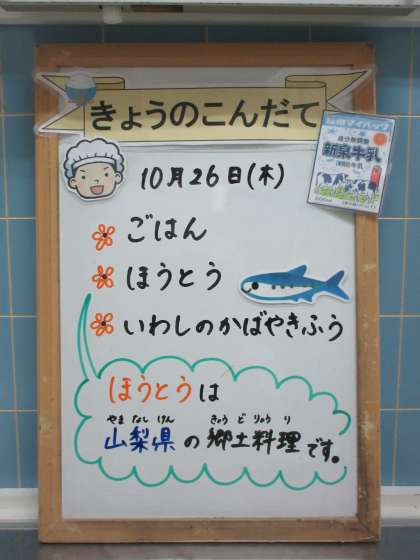 きょうのこんだて
10月26日(木)
ごはん
ほうとう
いわしのかばやきふう
ほうとうは
やま なし けん きょう ど りょう り
山梨県の郷土料理です。
新泉牛乳